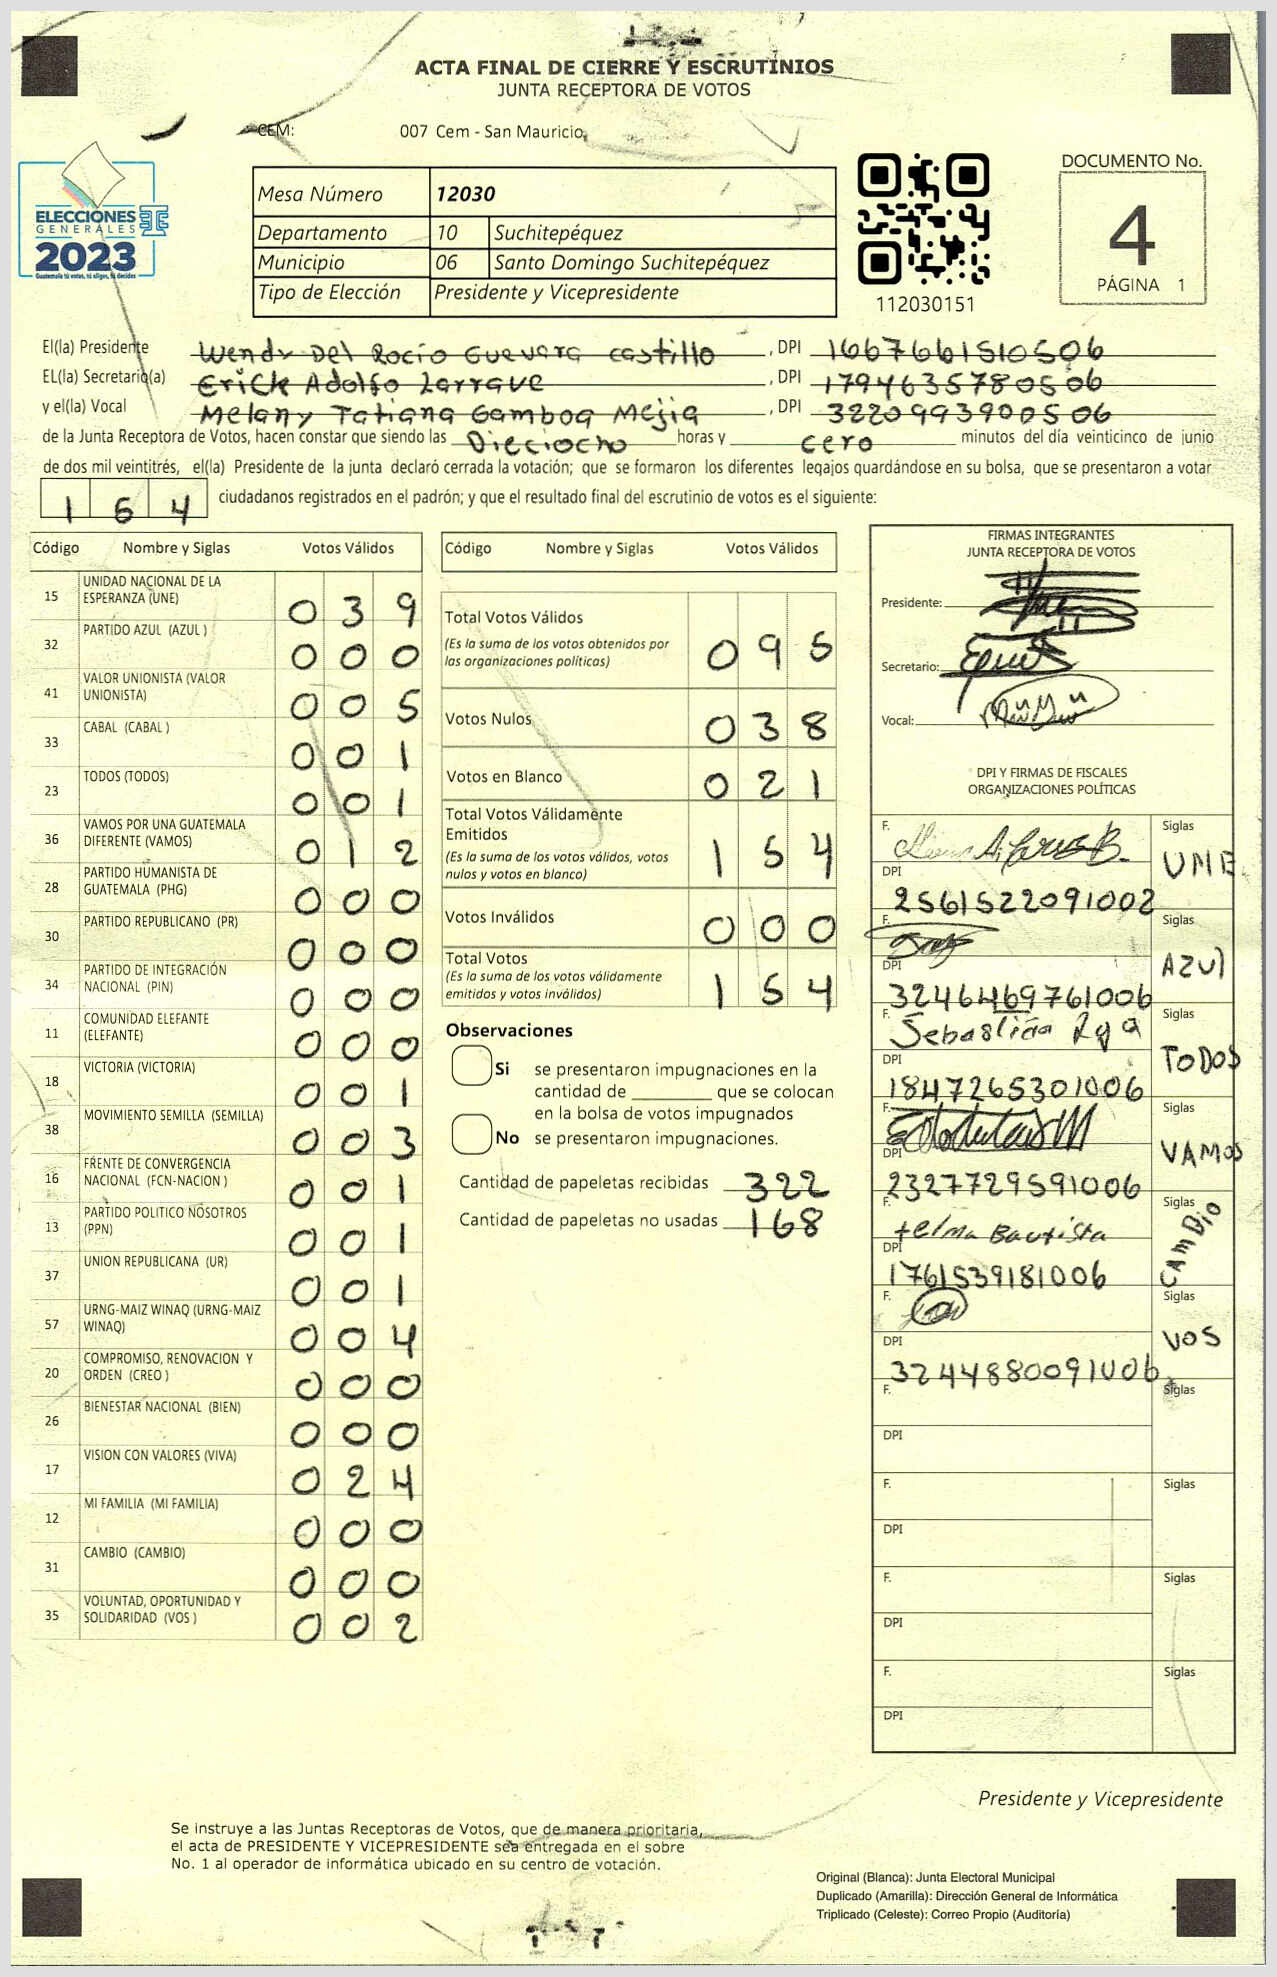 ACTA FINAL DE CIERRE Y ESCRUTINIOS
JUNTA RECEPTORA DE VOTOS
CEM: 007 Cem - San Mauricio,
ELECCIONES
GENERALES
2023
Guatemala tú votas, tú eliges, tú decides
Mesa Número 12030
Departamento 10 Suchitepéquez
Municipio 06 Santo Domingo Suchitepéquez
Tipo de Elección Presidente y Vicepresidente
112030151
DOCUMENTO No.
4
PÁGINA 1
El(la) Presidente Wendy Del Rocío Guevara Castillo, DPI 1667661510506
EL(la) Secretario(a) Erick Adolfo Larrave, DPI 1794635780506
y el(la) Vocal Melany Tatiana Gamboa Mejia, DPI 3220993900506
de la Junta Receptora de Votos, hacen constar que siendo las Dieciocho horas y cero minutos del día veinticinco de junio
de dos mil veintitrés, el(la) Presidente de la junta declaró cerrada la votación; que se formaron los diferentes legajos quardándose en su bolsa, que se presentaron a votar
154 ciudadanos registrados en el padrón; y que el resultado final del escrutinio de votos es el siguiente:
Código Nombre y Siglas Votos Válidos
15 UNIDAD NACIONAL DE LA ESPERANZA (UNE) 039
32 PARTIDO AZUL (AZUL ) 000
41 VALOR UNIONISTA (VALOR UNIONISTA) 005
33 CABAL (CABAL ) 001
23 TODOS (TODOS) 001
36 VAMOS POR UNA GUATEMALA DIFERENTE (VAMOS) 012
28 PARTIDO HUMANISTA DE GUATEMALA (PHG) 000
30 PARTIDO REPUBLICANO (PR) 000
34 PARTIDO DE INTEGRACIÓN NACIONAL (PIN) 000
11 COMUNIDAD ELEFANTE (ELEFANTE) 000
18 VICTORIA (VICTORIA) 001
38 MOVIMIENTO SEMILLA (SEMILLA) 003
16 FRENTE DE CONVERGENCIA NACIONAL (FCN-NACION ) 001
13 PARTIDO POLITICO NOSOTROS (PPN) 001
37 UNION REPUBLICANA (UR) 001
57 URNG-MAIZ WINAQ (URNG-MAIZ WINAQ) 004
20 COMPROMISO, RENOVACION Y ORDEN (CREO ) 000
26 BIENESTAR NACIONAL (BIEN) 000
17 VISION CON VALORES (VIVA) 024
12 MI FAMILIA (MI FAMILIA) 000
31 CAMBIO (CAMBIO) 000
35 VOLUNTAD, OPORTUNIDAD Y SOLIDARIDAD (VOS ) 002
Código Nombre y Siglas Votos Válidos
Total Votos Válidos 095
(Es la suma de los votos obtenidos por
las organizaciones políticas)
Votos Nulos 038
Votos en Blanco 021
Total Votos Válidamente
Emitidos 154
(Es la suma de los votos válidos, votos
nulos y votos en blanco)
Votos Inválidos 000
Total Votos 154
(Es la suma de los votos válidamente
emitidos y votos inválidos)
Observaciones
Si se presentaron impugnaciones en la
cantidad de ________ que se colocan
en la bolsa de votos impugnados
No se presentaron impugnaciones.
Cantidad de papeletas recibidas 322
Cantidad de papeletas no usadas 168
FIRMAS INTEGRANTES
JUNTA RECEPTORA DE VOTOS
Presidente:
Secretario:
Vocal:
DPI Y FIRMAS DE FISCALES
ORGANIZACIONES POLÍTICAS
F. Siglas UNE
DPI 2561522091002
F. Siglas AZUL
DPI 3246469761006
F. Sebastián Siglas TODOS
DPI 1847265301006
F. Siglas VAMOS
DPI 2327729591006
F. telma Bautista Siglas CAMBIO
DPI 1761539181006
F. Siglas VOS
DPI 3244880091006
F. Siglas
DPI
F. Siglas
DPI
F. Siglas
DPI
F. Siglas
DPI
Presidente y Vicepresidente
Se instruye a las Juntas Receptoras de Votos, que de manera prioritaria,
el acta de PRESIDENTE Y VICEPRESIDENTE sea entregada en el sobre
No. 1 al operador de informática ubicado en su centro de votación.
Original (Blanca): Junta Electoral Municipal
Duplicado (Amarilla): Dirección General de Informática
Triplicado (Celeste): Correo Propio (Auditoría)